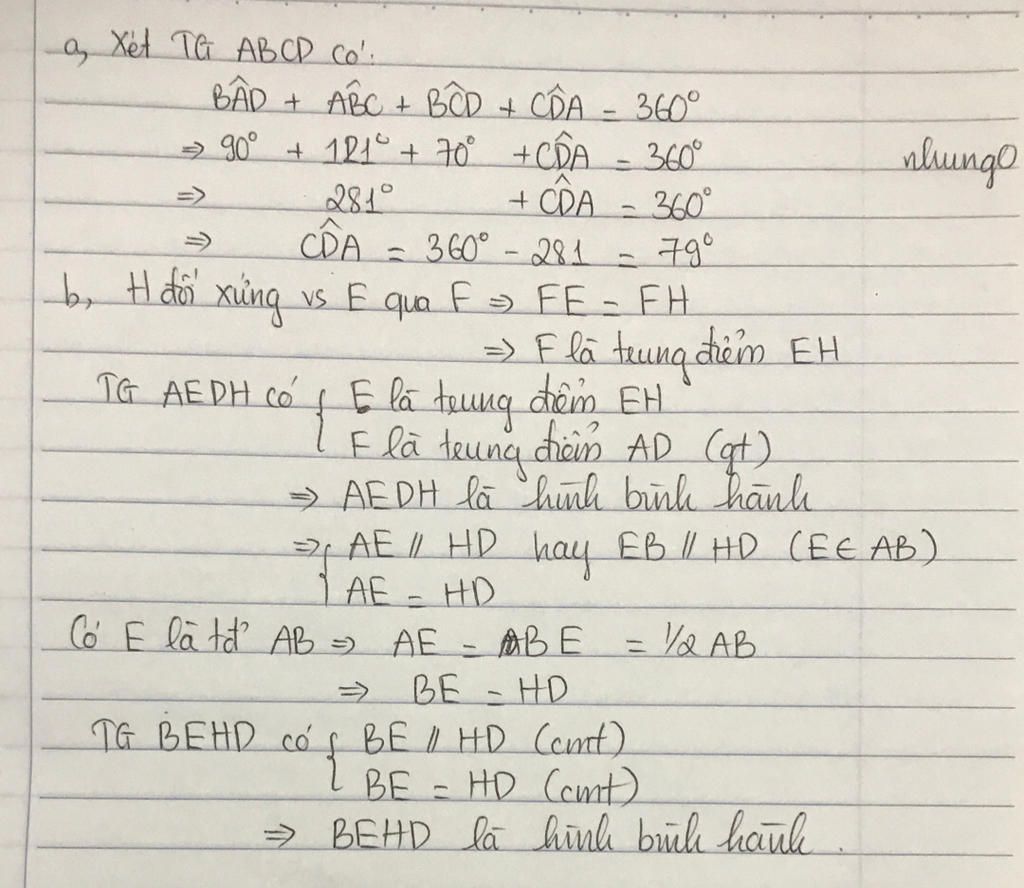 a, Xét TG ABCD có:
BÂD + AB̂C + BĈD + CD̂A = 360°
⇒ 90° + 121° + 70° + CD̂A = 360°
nhung0
⇒ 281° + CD̂A = 360°
⇒ CD̂A = 360° - 281 = 79°
b, H đối xứng vs E qua F ⇒ FE = FH
⇒ F là trung điểm EH
TG AEDH có { E là trung điểm EH
F là trung điểm AD (gt)
⇒ AEDH là hình bình hành
⇒ { AE // HD hay EB // HD (E ∈ AB)
AE = HD
Có E là tđ AB ⇒ AE = BE = 1/2 AB
⇒ BE = HD
TG BEHD có { BE // HD (cmt)
BE = HD (cmt)
⇒ BEHD là hình bình hành.